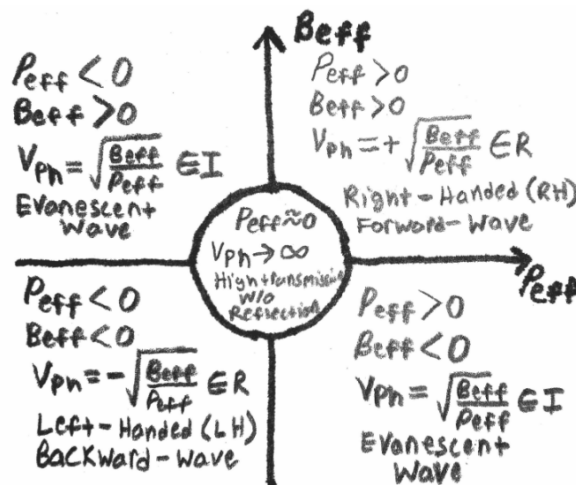 Beff
Peff < 0
Beff > 0
Vph = √Beff/Peff ∈ I
Evanescent
Wave
Peff > 0
Beff > 0
Vph = + √Beff/Peff ∈ R
Right-Handed (RH)
Forward-Wave
Peff ≈ 0
Vph → ∞
High transmission
w/o
Reflection
Peff
Peff < 0
Beff < 0
Vph = - √Beff/Peff ∈ R
Left-Handed (LH)
Backward-Wave
Peff > 0
Beff < 0
Vph = √Beff/Peff ∈ I
Evanescent
Wave